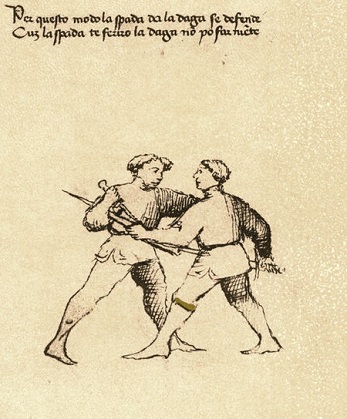 Per questo modo la spada da la daga se defende
Cuz la spada te feriro la daga nō po far niēte